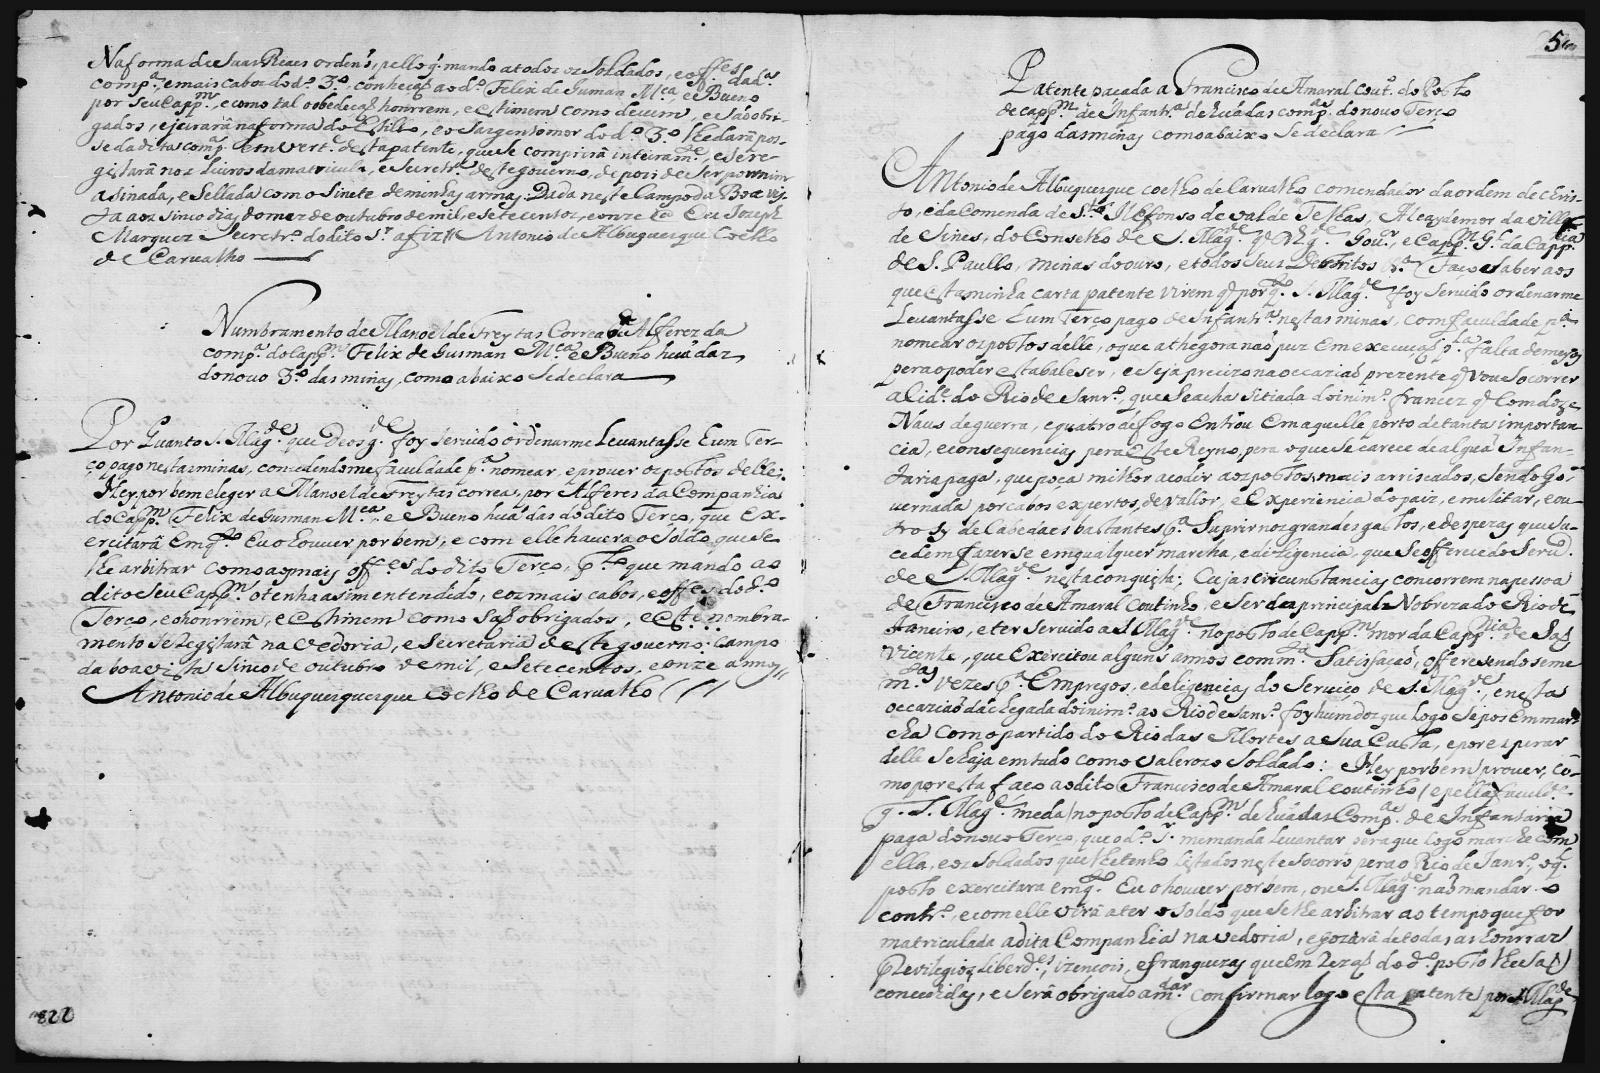 Na forma de Suas Reaes ordens, pello q̃ mando a todos os Soldados, e off.es da d.a
comp.a, e mais cabos do d.o 3.o, conheçaõ ao d.o Felix de Gusman M.ca, e Bueno
por seu Capp.m, e como tal o obedeçaõ, honrrem, e estimem como devem, e saõ obri-
gados, e jurará na forma do Estillo, e o Sargento mor do d.o 3.o lhe dará pos-
se da dita comp.a em vert.e desta patente, que se comprirá inteiram.te, e se re-
gistará nos Livros da matricula, e Secretr.a deste governo, depois de ser por mim
asinada, e Sellada com o Sinete de minhas armas. Dada neste Campo da Boa vis-
ta aos sinco dias do mez de outubro de mil, e sete centos, e onze Eu Joseph
Marques Secretr.o do dito S.r a fiz // Antonio de Albuquerque Coelho
de Carvalho
Numbramento de Manoel de Freytas Correa de Alferez da
comp.a do Capp.m Felix de Gusman M.ca e Bueno huã das
do novo 3.o das minas, como abaixo se declara
Por Quanto S. Mag.de que Deos g.de foy servido ordenarme Levantasse hum Ter-
ço pago nestas minas, consedendome faculdade p.a nomear, e prover os postos delle:
Hey por bem eleger a Manoel de Freytas correa, por Alferes da Companhia
do Capp.m Felix de Gusman M.ca, e Bueno huã das do dito Terço, que ex-
ercitará emq.to Eu o houver por bem, e com elle haverá o Soldo, que se
lhe arbitrar como aos mais off.es do dito Terço, P.lo que mando ao
dito seu Capp.m o tenha asim entendido, e os mais cabos, e off.es do d.o
Terço, e o honrrem, e estimem como saõ obrigados, e este nombra-
mento se Registará na vedoria, e Secretaria deste governo: Campo
da boa vista sinco de outubro de mil, e sete centos, e onze annos //
Antonio de Albuquerquerque Coelho de Carvalho
822
56
Patente pasada a Francisco de Amaral Cout.o do Posto
de capp.m de Infantr.a de huã das comp.as do novo Terço
pago das minas como abaixo se declara
Antonio de Albuquerque coelho de Carvalho comendador da ordem de chris-
to, e da Comenda de S.to Ildefonso de val de Telhas, Alcaydemor da villa
de Sines, do Conselho de S. Mag.de q̃ D.s g.de Gov.or, e Capp.m G.l da Capp.nia
de S. Paullo, minas do ouro, e todos seus Destritos &.a Faço saber aos
que esta minha carta patente virem q̃ porq̃ S. Mag.de foy servido ordenarme
Levantasse hum Terço pago de Infantr.a nestas minas, com faculdade p.a
nomear os postos delle, o que athegora naõ puz em execuçaõ p.la falta de meyos
pera o poder estabaleser, e seja precizo na occaziaõ prezente q̃ vou socorrer
a Cid.e do Rio de Janr.o, que se acha sitiada do inim.o francez q̃ com doze
Naus de guerra, e quatro de fogo entrou em aquelle porto de tanta importan-
cia, e consequencias pera este Reyno, pera o que se carece de alguã Infan-
taria paga, que poça milhor acodir aos postos mais arriscados, sendo go-
vernada por cabos expertos, de vallor, e experiencia do paiz, e militar, e ou-
tro sy de Cabedaes bastantes p.a suprir nos grandes gastos, e despezas que su-
cedem fazerse em qualquer marcha, e diligencia, que se offerece do serv.o
de S. Mag.de nesta conquista; Cujas circunstancias concorrem na pessoa
de Francisco de Amaral Coutinho, e ser da principal Nobreza do Rio de
Janeiro, e ter servido a S. Mag.de no posto de Capp.m mor da Capp.nia de Saõ
Vicente, que exercitou alguns annos com m.ta Satisfaçaõ, offeresendoseme
m.tas vezes p.a Empregos, e deligencias do Serviço de S. Mag.de, e nesta
occaziaõ da chegada do inim.o ao Rio de Janr.o foy hum dos que logo se pos em mar-
cha com o partido do Rio das Mortes a sua Custa, e por esperar
delle se haja em tudo como valerozo Soldado: Hey por bem prover, co-
mo por esta faço ao dito Francisco de Amaral coutinho (e pella faculd.e
q̃ S. Mag.de me da) no posto de Capp.m de huã das Comp.as de Infantaria
paga do novo Terço, que o d.o S.r me manda levantar pera que logo marche com
ella, e os Soldados que lhe tenho listados neste socorro pera o Rio de Janr.o, o q.l
posto exercitara emq.to Eu o houver por bem, ou S. Mag.de naõ mandar o
contr.o, e com elle virá a ter o soldo que se lhe arbitrar ao tempo que for
matriculada a dita Companhia na vedoria, e gozará de todas as honrras
Previlegios, Liberd.es, izençois, e franquezas que em rezaõ do d.o posto lhe saõ
concedidas, e será obrigado a m.dar confirmar logo esta patente por S. Mag.de